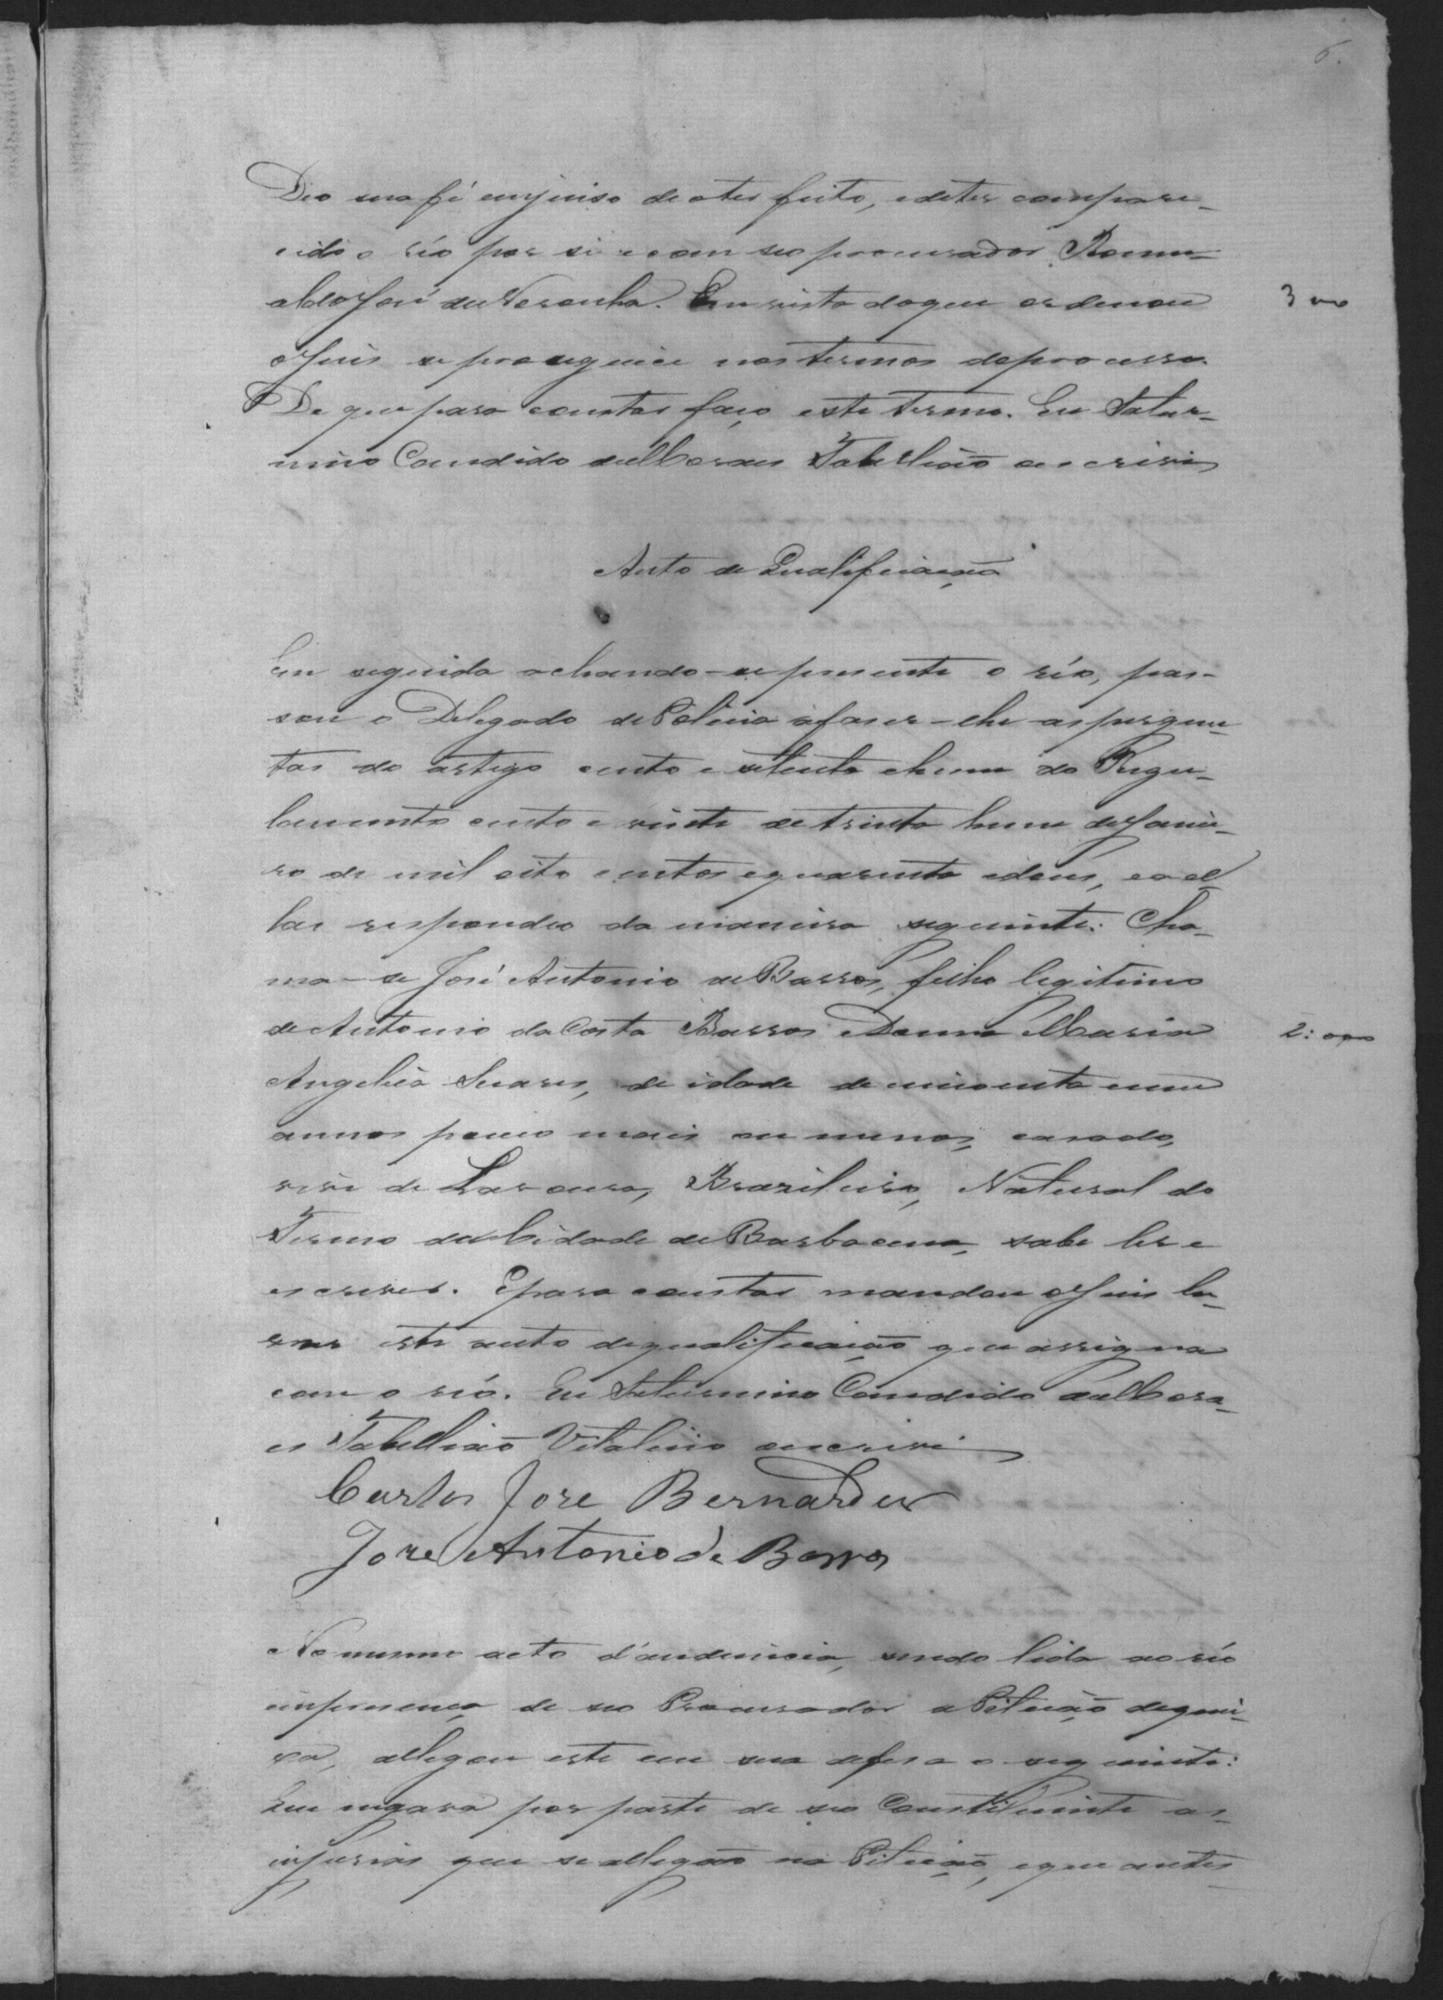 6.
Deo sua fé emjuiso de oter feito, edeter compare-
cido o réo por si e com seo procurador Romu-
aldo José de Noronha. Em vista doque ordenou
3000
oJuis se proseguice nos termos doprocesso.
De que para constar faço este termo. Eu Satur-
nino Candido deMoraes Tabellião oescrivi
Auto de Qualificação
Em seguida achando-se presente o réo, pas-
sou o Delegado dePolicia afaser-lhe asperguu-
tas do artigo cento e setenta ehum do Regu-
lamento cento e vinte de trinta hum deJanei-
ro de mil oito centos equarenta edous, eael-
las respondeo da maneira seguinte: Cha-
ma-se José Antonio deBarros, filho legitimo
deAntonio da Costa Barros eDonna Maria
2:000
Angelica Soares, de idade de cincoenta eum
annos pouco mais ou menos, casado,
vive de Lavoura, Brazileiro, Natural do
Termo da Cidade deBarbacena, sabe ler e
escrever. Epara constar mandou oJuis la-
vrar este auto dequalificação que assigna
com o réo. Eu Saturnino Candido deMora-
es Tabellião Vitalicio oescrivi
Carlos Jose Bernardes
Jose Antonio de Barros
No mesmo acto d'audiencia, sendo lida ao réo
empresença de seo Procurador aPetição dequei-
xa, allegou este em sua defesa o seguinte:
Que negava por parte de seo Constituinte as
injurias que se allegão na Petição, eque antes